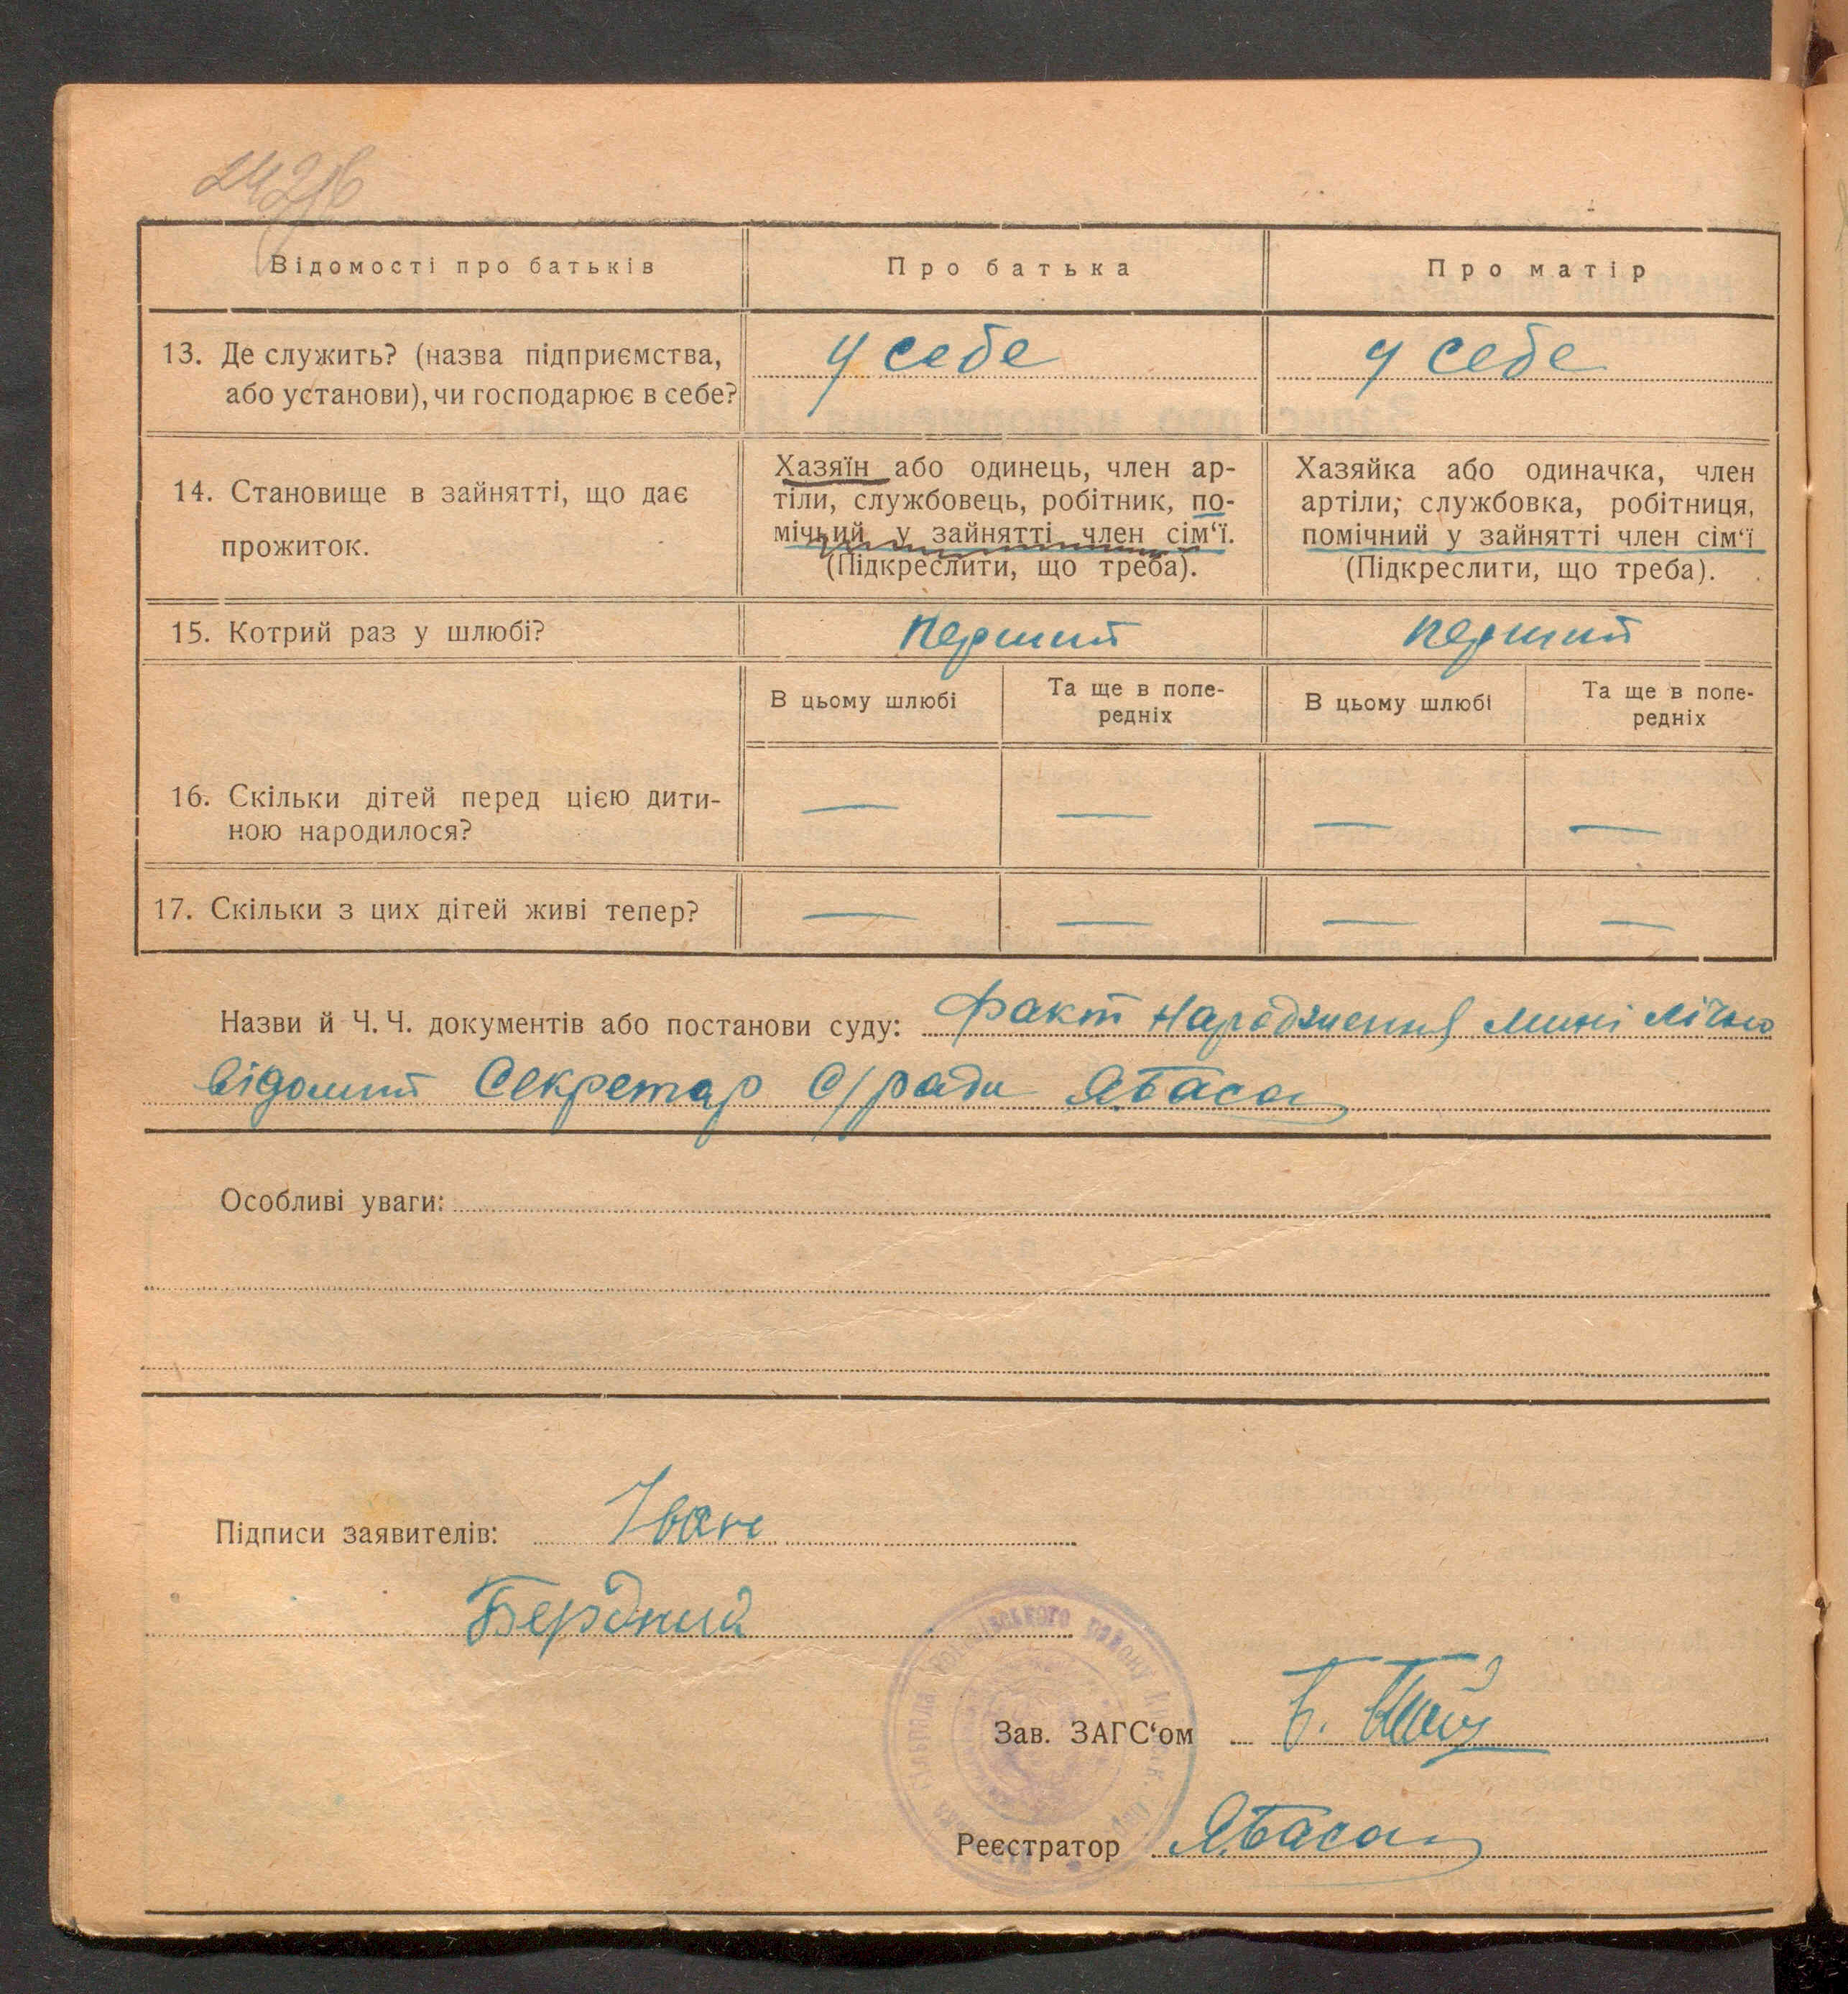 Відомості про батьків
Про батька
Про матір
13. Де служить? (назва підприємства,
або установи), чи господарює в себе?
у себе
у себе
14. Становище в зайнятті, що дає
прожиток.
Хазяїн або одинець, член ар-
тіли, службовець, робітник, по-
мічний у зайнятті член сім‘ї.
(Підкреслити, що треба).
Хазяйка або одиначка, член
артіли; службовка, робітниця,
помічний у зайнятті член сім‘ї
(Підкреслити, що треба).
15. Котрий раз у шлюбі?
перший
перший
В цьому шлюбі
Та ще в попе-
редніх
В цьому шлюбі
Та ще в попе-
редніх
16. Скільки дітей перед цією дити-
ною народилося?
— — — —
17. Скільки з цих дітей живі тепер?
— — — —
Назви й Ч. Ч. документів або постанови суду: Факт народження мині лічно
відомий Секретар С/ради ЯБаса
Особливі уваги:
Підписи заявителів: Іван
Бердний
району
Зав. ЗАГС‘ом Б.
Реєстратор ЯБаса